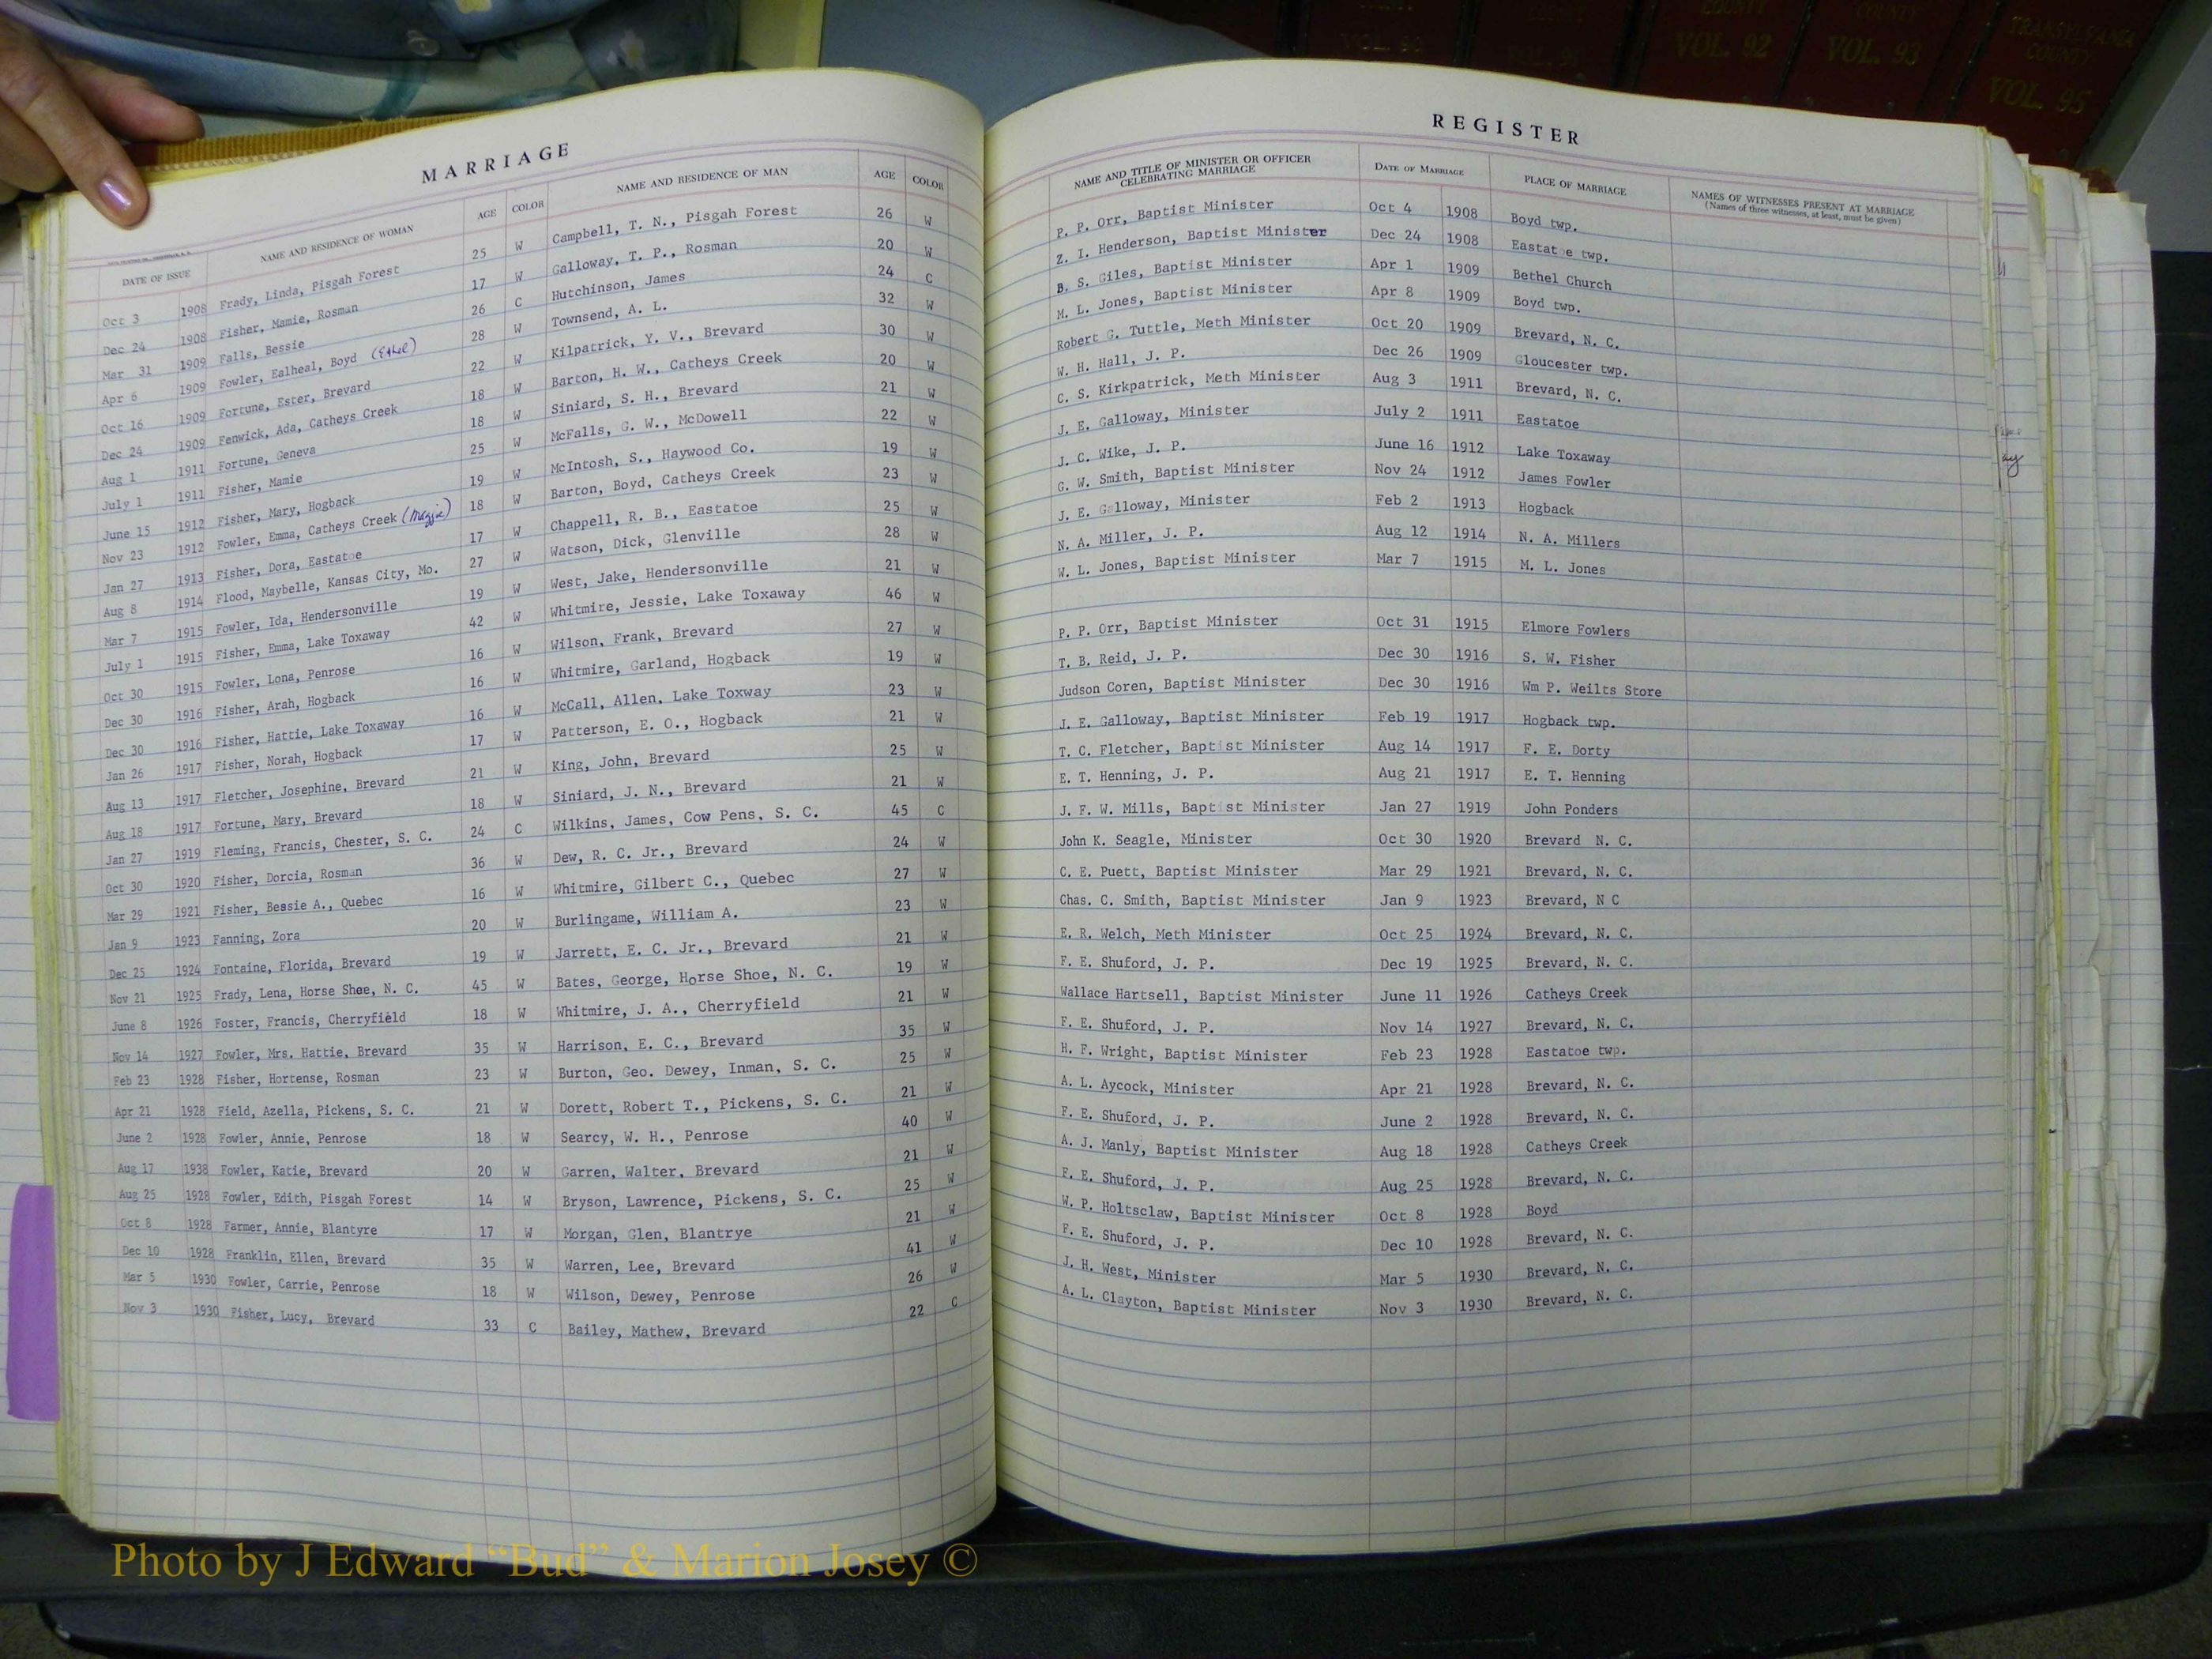 COUNTY
VOL. 92
COUNTY
VOL. 93
TRANSYLVANIA
COUNTY
VOL. 95
MARRIAGE
DATE OF ISSUE NAME AND RESIDENCE OF WOMAN AGE COLOR NAME AND RESIDENCE OF MAN AGE COLOR
Oct 3 1908 Frady, Linda, Pisgah Forest 25 W Campbell, T. N., Pisgah Forest 26 W
Dec 24 1908 Fisher, Mamie, Rosman 17 W Galloway, T. P., Rosman 20 W
Mar 31 1909 Falls, Bessie 26 C Hutchinson, James 24 C
Apr 6 1909 Fowler, Ealheal, Boyd (Ethel) 28 W Townsend, A. L. 32 W
Oct 16 1909 Fortune, Ester, Brevard 22 W Kilpatrick, Y. V., Brevard 30 W
Dec 24 1909 Fenwick, Ada, Catheys Creek 18 W Barton, H. W., Catheys Creek 20 W
Aug 1 1911 Fortune, Geneva 18 W Siniard, S. H., Brevard 21 W
July 1 1911 Fisher, Mamie 25 W McFalls, G. W., McDowell 22 W
June 15 1912 Fisher, Mary, Hogback 19 W McIntosh, S., Haywood Co. 19 W
Nov 23 1912 Fowler, Emma, Catheys Creek (Maggie) 18 W Barton, Boyd, Catheys Creek 23 W
Jan 27 1913 Fisher, Dora, Eastatoe 17 W Chappell, R. B., Eastatoe 25 W
Aug 8 1914 Flood, Maybelle, Kansas City, Mo. 27 W Watson, Dick, Glenville 28 W
Mar 7 1915 Fowler, Ida, Hendersonville 19 W West, Jake, Hendersonville 21 W
July 1 1915 Fisher, Emma, Lake Toxaway 42 W Whitmire, Jessie, Lake Toxaway 46 W
Oct 30 1915 Fowler, Lona, Penrose 16 W Wilson, Frank, Brevard 27 W
Dec 30 1916 Fisher, Arah, Hogback 16 W Whitmire, Garland, Hogback 19 W
Dec 30 1916 Fisher, Hattie, Lake Toxaway 16 W McCall, Allen, Lake Toxway 23 W
Jan 26 1917 Fisher, Norah, Hogback 17 W Patterson, E. O., Hogback 21 W
Aug 13 1917 Fletcher, Josephine, Brevard 21 W King, John, Brevard 25 W
Aug 18 1917 Fortune, Mary, Brevard 18 W Siniard, J. N., Brevard 21 W
Jan 27 1919 Fleming, Francis, Chester, S. C. 24 C Wilkins, James, Cow Pens, S. C. 45 C
Oct 30 1920 Fisher, Dorcia, Rosman 36 W Dew, R. C. Jr., Brevard 24 W
Mar 29 1921 Fisher, Bessie A., Quebec 16 W Whitmire, Gilbert C., Quebec 27 W
Jan 9 1923 Fanning, Zora 20 W Burlingame, William A. 23 W
Dec 25 1924 Fontaine, Florida, Brevard 19 W Jarrett, E. C. Jr., Brevard 21 W
Nov 21 1925 Frady, Lena, Horse Shoe, N. C. 45 W Bates, George, Horse Shoe, N. C. 19 W
June 8 1926 Foster, Francis, Cherryfield 18 W Whitmire, J. A., Cherryfield 21 W
Nov 14 1927 Fowler, Mrs. Hattie, Brevard 35 W Harrison, E. C., Brevard 35 W
Feb 23 1928 Fisher, Hortense, Rosman 23 W Burton, Geo. Dewey, Inman, S. C. 25 W
Apr 21 1928 Field, Azella, Pickens, S. C. 21 W Dorett, Robert T., Pickens, S. C. 21 W
June 2 1928 Fowler, Annie, Penrose 18 W Searcy, W. H., Penrose 40 W
Aug 17 1938 Fowler, Katie, Brevard 20 W Garren, Walter, Brevard 21 W
Aug 25 1928 Fowler, Edith, Pisgah Forest 14 W Bryson, Lawrence, Pickens, S. C. 25 W
Oct 8 1928 Farmer, Annie, Blantyre 17 W Morgan, Glen, Blantrye 21 W
Dec 10 1928 Franklin, Ellen, Brevard 35 W Warren, Lee, Brevard 41 W
Mar 5 1930 Fowler, Carrie, Penrose 18 W Wilson, Dewey, Penrose 26 W
Nov 3 1930 Fisher, Lucy, Brevard 33 C Bailey, Mathew, Brevard 22 C
REGISTER
NAME AND TITLE OF MINISTER OR OFFICER CELEBRATING MARRIAGE DATE OF MARRIAGE PLACE OF MARRIAGE NAMES OF WITNESSES PRESENT AT MARRIAGE
(Names of three witnesses, at least, must be given)
P. P. Orr, Baptist Minister Oct 4 1908 Boyd twp.
Z. I. Henderson, Baptist Minister Dec 24 1908 Eastatoe twp.
B. S. Giles, Baptist Minister Apr 1 1909 Bethel Church
M. L. Jones, Baptist Minister Apr 8 1909 Boyd twp.
Robert G. Tuttle, Meth Minister Oct 20 1909 Brevard, N. C.
W. H. Hall, J. P. Dec 26 1909 Gloucester twp.
C. S. Kirkpatrick, Meth Minister Aug 3 1911 Brevard, N. C.
J. E. Galloway, Minister July 2 1911 Eastatoe
J. C. Wike, J. P. June 16 1912 Lake Toxaway
G. W. Smith, Baptist Minister Nov 24 1912 James Fowler
J. E. Galloway, Minister Feb 2 1913 Hogback
N. A. Miller, J. P. Aug 12 1914 N. A. Millers
W. L. Jones, Baptist Minister Mar 7 1915 M. L. Jones
P. P. Orr, Baptist Minister Oct 31 1915 Elmore Fowlers
T. B. Reid, J. P. Dec 30 1916 S. W. Fisher
Judson Coren, Baptist Minister Dec 30 1916 Wm P. Weilts Store
J. E. Galloway, Baptist Minister Feb 19 1917 Hogback twp.
T. C. Fletcher, Baptist Minister Aug 14 1917 F. E. Dorty
E. T. Henning, J. P. Aug 21 1917 E. T. Henning
J. F. W. Mills, Baptist Minister Jan 27 1919 John Ponders
John K. Seagle, Minister Oct 30 1920 Brevard N. C.
C. E. Puett, Baptist Minister Mar 29 1921 Brevard, N. C.
Chas. C. Smith, Baptist Minister Jan 9 1923 Brevard, N C
E. R. Welch, Meth Minister Oct 25 1924 Brevard, N. C.
F. E. Shuford, J. P. Dec 19 1925 Brevard, N. C.
Wallace Hartsell, Baptist Minister June 11 1926 Catheys Creek
F. E. Shuford, J. P. Nov 14 1927 Brevard, N. C.
H. F. Wright, Baptist Minister Feb 23 1928 Eastatoe twp.
A. L. Aycock, Minister Apr 21 1928 Brevard, N. C.
F. E. Shuford, J. P. June 2 1928 Brevard, N. C.
A. J. Manly, Baptist Minister Aug 18 1928 Catheys Creek
F. E. Shuford, J. P. Aug 25 1928 Brevard, N. C.
W. P. Holtsclaw, Baptist Minister Oct 8 1928 Boyd
F. E. Shuford, J. P. Dec 10 1928 Brevard, N. C.
J. H. West, Minister Mar 5 1930 Brevard, N. C.
A. L. Clayton, Baptist Minister Nov 3 1930 Brevard, N. C.
Photo by J Edward “Bud” & Marion Josey ©